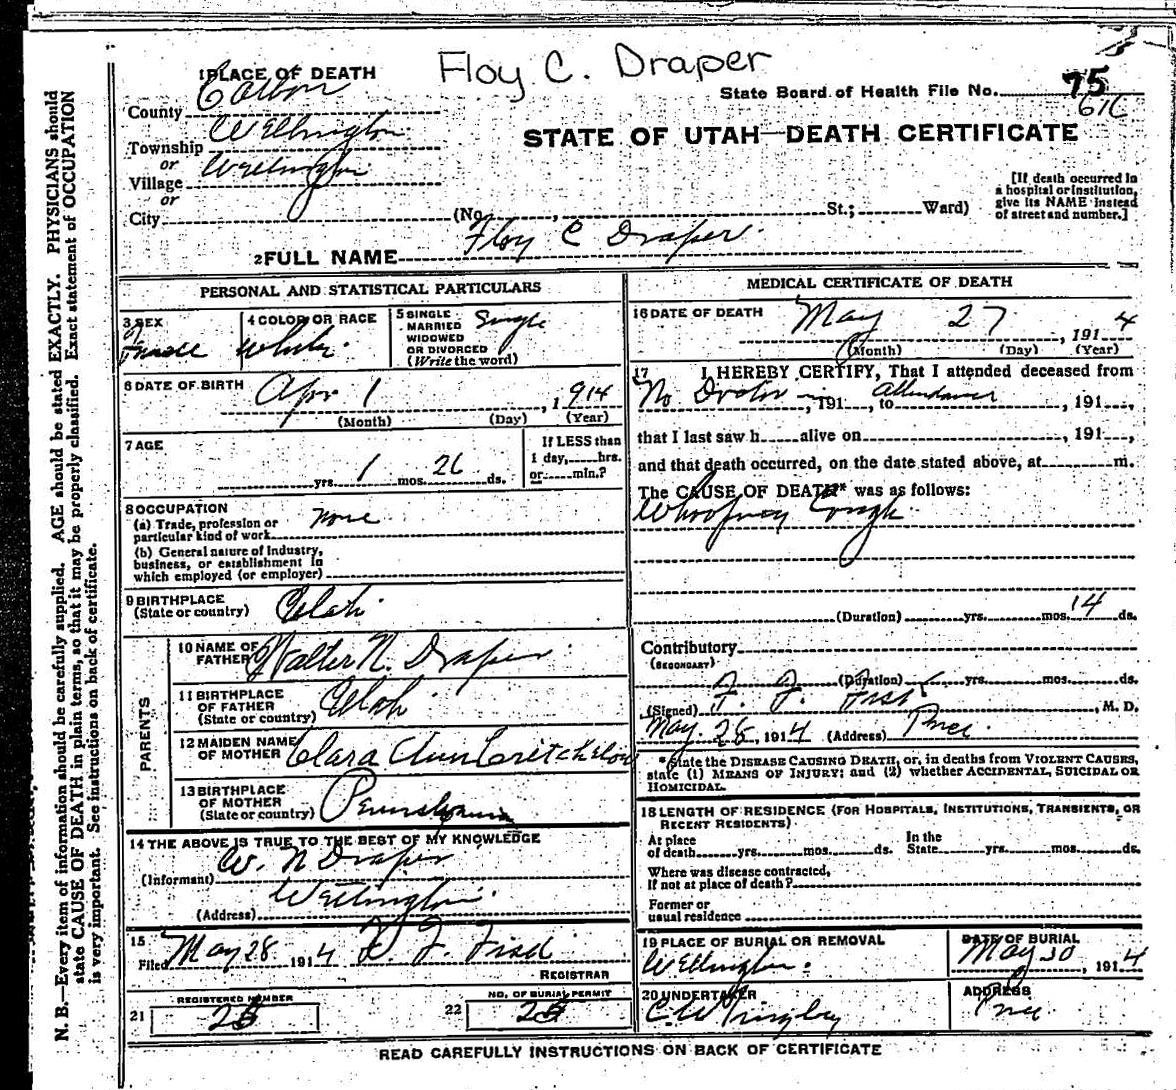 Floy C. Draper
1 PLACE OF DEATH
County Carbon
State Board of Health File No. 75
616
Township Wellington
or
Village Wellington
or
City (No. , St.; Ward)
STATE OF UTAH—DEATH CERTIFICATE
[If death occurred in
a hospital or institution,
give its NAME instead
of street and number.]
2 FULL NAME Floy C Draper
PERSONAL AND STATISTICAL PARTICULARS
3 SEX
Female
4 COLOR OR RACE
White
5 SINGLE
MARRIED
WIDOWED
OR DIVORCED
(Write the word)
Single
6 DATE OF BIRTH
Apr 1 , 1914
(Month) (Day) (Year)
7 AGE
yrs. 1 mos. 26 ds.
If LESS than
1 day, hrs.
or min.?
8 OCCUPATION
(a) Trade, profession or
particular kind of work None
(b) General nature of Industry,
business, or establishment in
which employed (or employer)
9 BIRTHPLACE
(State or country) Utah
PARENTS
10 NAME OF
FATHER Walter N. Draper
11 BIRTHPLACE
OF FATHER
(State or country) Utah
12 MAIDEN NAME
OF MOTHER Clara Ann Critchelow
13 BIRTHPLACE
OF MOTHER
(State or country) Pennsylvania
14 THE ABOVE IS TRUE TO THE BEST OF MY KNOWLEDGE
(Informant) W. N Draper
(Address) Wellington
15
Filed May 28 1914
REGISTRAR
21 REGISTERED NUMBER
22 NO. OF BURIAL PERMIT
MEDICAL CERTIFICATE OF DEATH
16 DATE OF DEATH
May 27 , 1914
(Month) (Day) (Year)
17 I HEREBY CERTIFY, That I attended deceased from
No Doctor in , 191 , to Attendance , 191 ,
that I last saw h alive on , 191 ,
and that death occurred, on the date stated above, at m.
The CAUSE OF DEATH* was as follows:
Whooping Cough
(Duration) yrs. mos. 14 ds.
Contributory
(SECONDARY)
(Duration) yrs. mos. ds.
(Signed) F. F. Fisk , M. D.
May. 28, 1914 (Address) Price.
*State the DISEASE CAUSING DEATH, or, in deaths from VIOLENT CAUSES,
state (1) MEANS OF INJURY; and (2) whether ACCIDENTAL, SUICIDAL OR
HOMICIDAL.
18 LENGTH OF RESIDENCE (FOR HOSPITALS, INSTITUTIONS, TRANSIENTS, OR
RECENT RESIDENTS)
At place
of death yrs. mos. ds.
In the
State yrs. mos. ds.
Where was disease contracted,
If not at place of death?
Former or
usual residence
19 PLACE OF BURIAL OR REMOVAL
Wellington.
DATE OF BURIAL
May 30 , 1914
20 UNDERTAKER
ADDRESS
Price
READ CAREFULLY INSTRUCTIONS ON BACK OF CERTIFICATE
N. B.—Every item of information should be carefully supplied. AGE should be stated EXACTLY. PHYSICIANS should
state CAUSE OF DEATH in plain terms, so that it may be properly classified. Exact statement of OCCUPATION
is very important. See instructions on back of certificate.